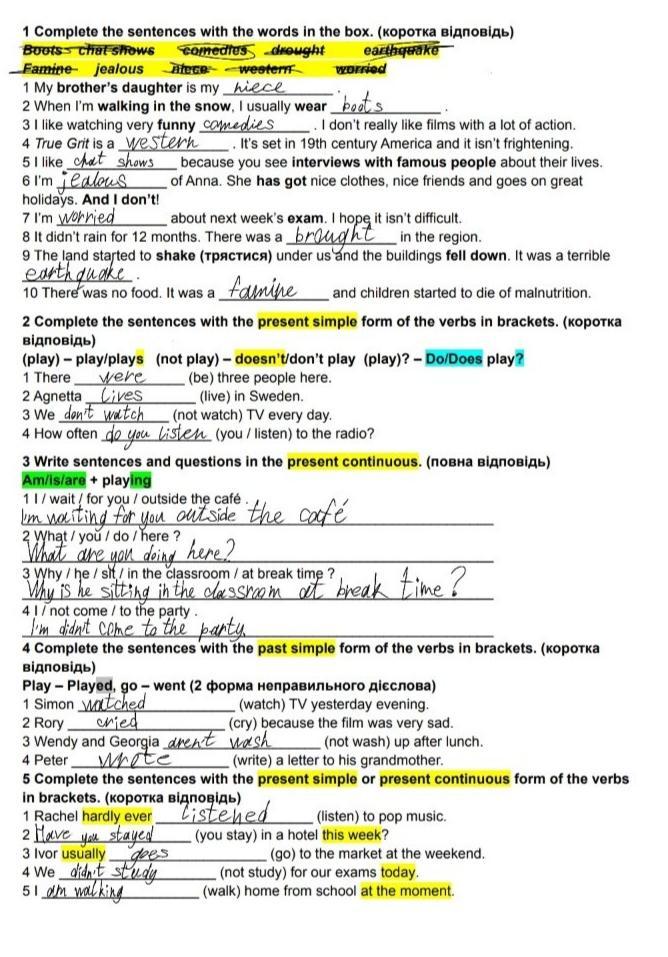 1 Complete the sentences with the words in the box. (коротка відповідь)
Boots chat shows comedies drought earthquake
Famine jealous niece western worried
1 My brother's daughter is my niece.
2 When I'm walking in the snow, I usually wear boots.
3 I like watching very funny comedies. I don't really like films with a lot of action.
4 True Grit is a western. It's set in 19th century America and it isn't frightening.
5 I like chat shows because you see interviews with famous people about their lives.
6 I'm jealous of Anna. She has got nice clothes, nice friends and goes on great
holidays. And I don't!
7 I'm worried about next week's exam. I hope it isn't difficult.
8 It didn't rain for 12 months. There was a brought in the region.
9 The land started to shake (трястися) under us and the buildings fell down. It was a terrible
earthquake.
10 There was no food. It was a famine and children started to die of malnutrition.
2 Complete the sentences with the present simple form of the verbs in brackets. (коротка
відповідь)
(play) – play/plays (not play) – doesn't/don't play (play)? – Do/Does play?
1 There were (be) three people here.
2 Agnetta lives (live) in Sweden.
3 We don't watch (not watch) TV every day.
4 How often do you listen (you / listen) to the radio?
3 Write sentences and questions in the present continuous. (повна відповідь)
Am/is/are + playing
1 I / wait / for you / outside the café .
I'm waiting for you outside the café
2 What / you / do / here ?
What are you doing here?
3 Why / he / sit / in the classroom / at break time ?
Why is he sitting in the classroom at break time?
4 I / not come / to the party .
I'm didn't come to the party.
4 Complete the sentences with the past simple form of the verbs in brackets. (коротка
відповідь)
Play – Played, go – went (2 форма неправильного дієслова)
1 Simon watched (watch) TV yesterday evening.
2 Rory cried (cry) because the film was very sad.
3 Wendy and Georgia arent wash (not wash) up after lunch.
4 Peter wrote (write) a letter to his grandmother.
5 Complete the sentences with the present simple or present continuous form of the verbs
in brackets. (коротка відповідь)
1 Rachel hardly ever listened (listen) to pop music.
2 Have you stayed (you stay) in a hotel this week?
3 Ivor usually goes (go) to the market at the weekend.
4 We didn't study (not study) for our exams today.
5 I am walking (walk) home from school at the moment.